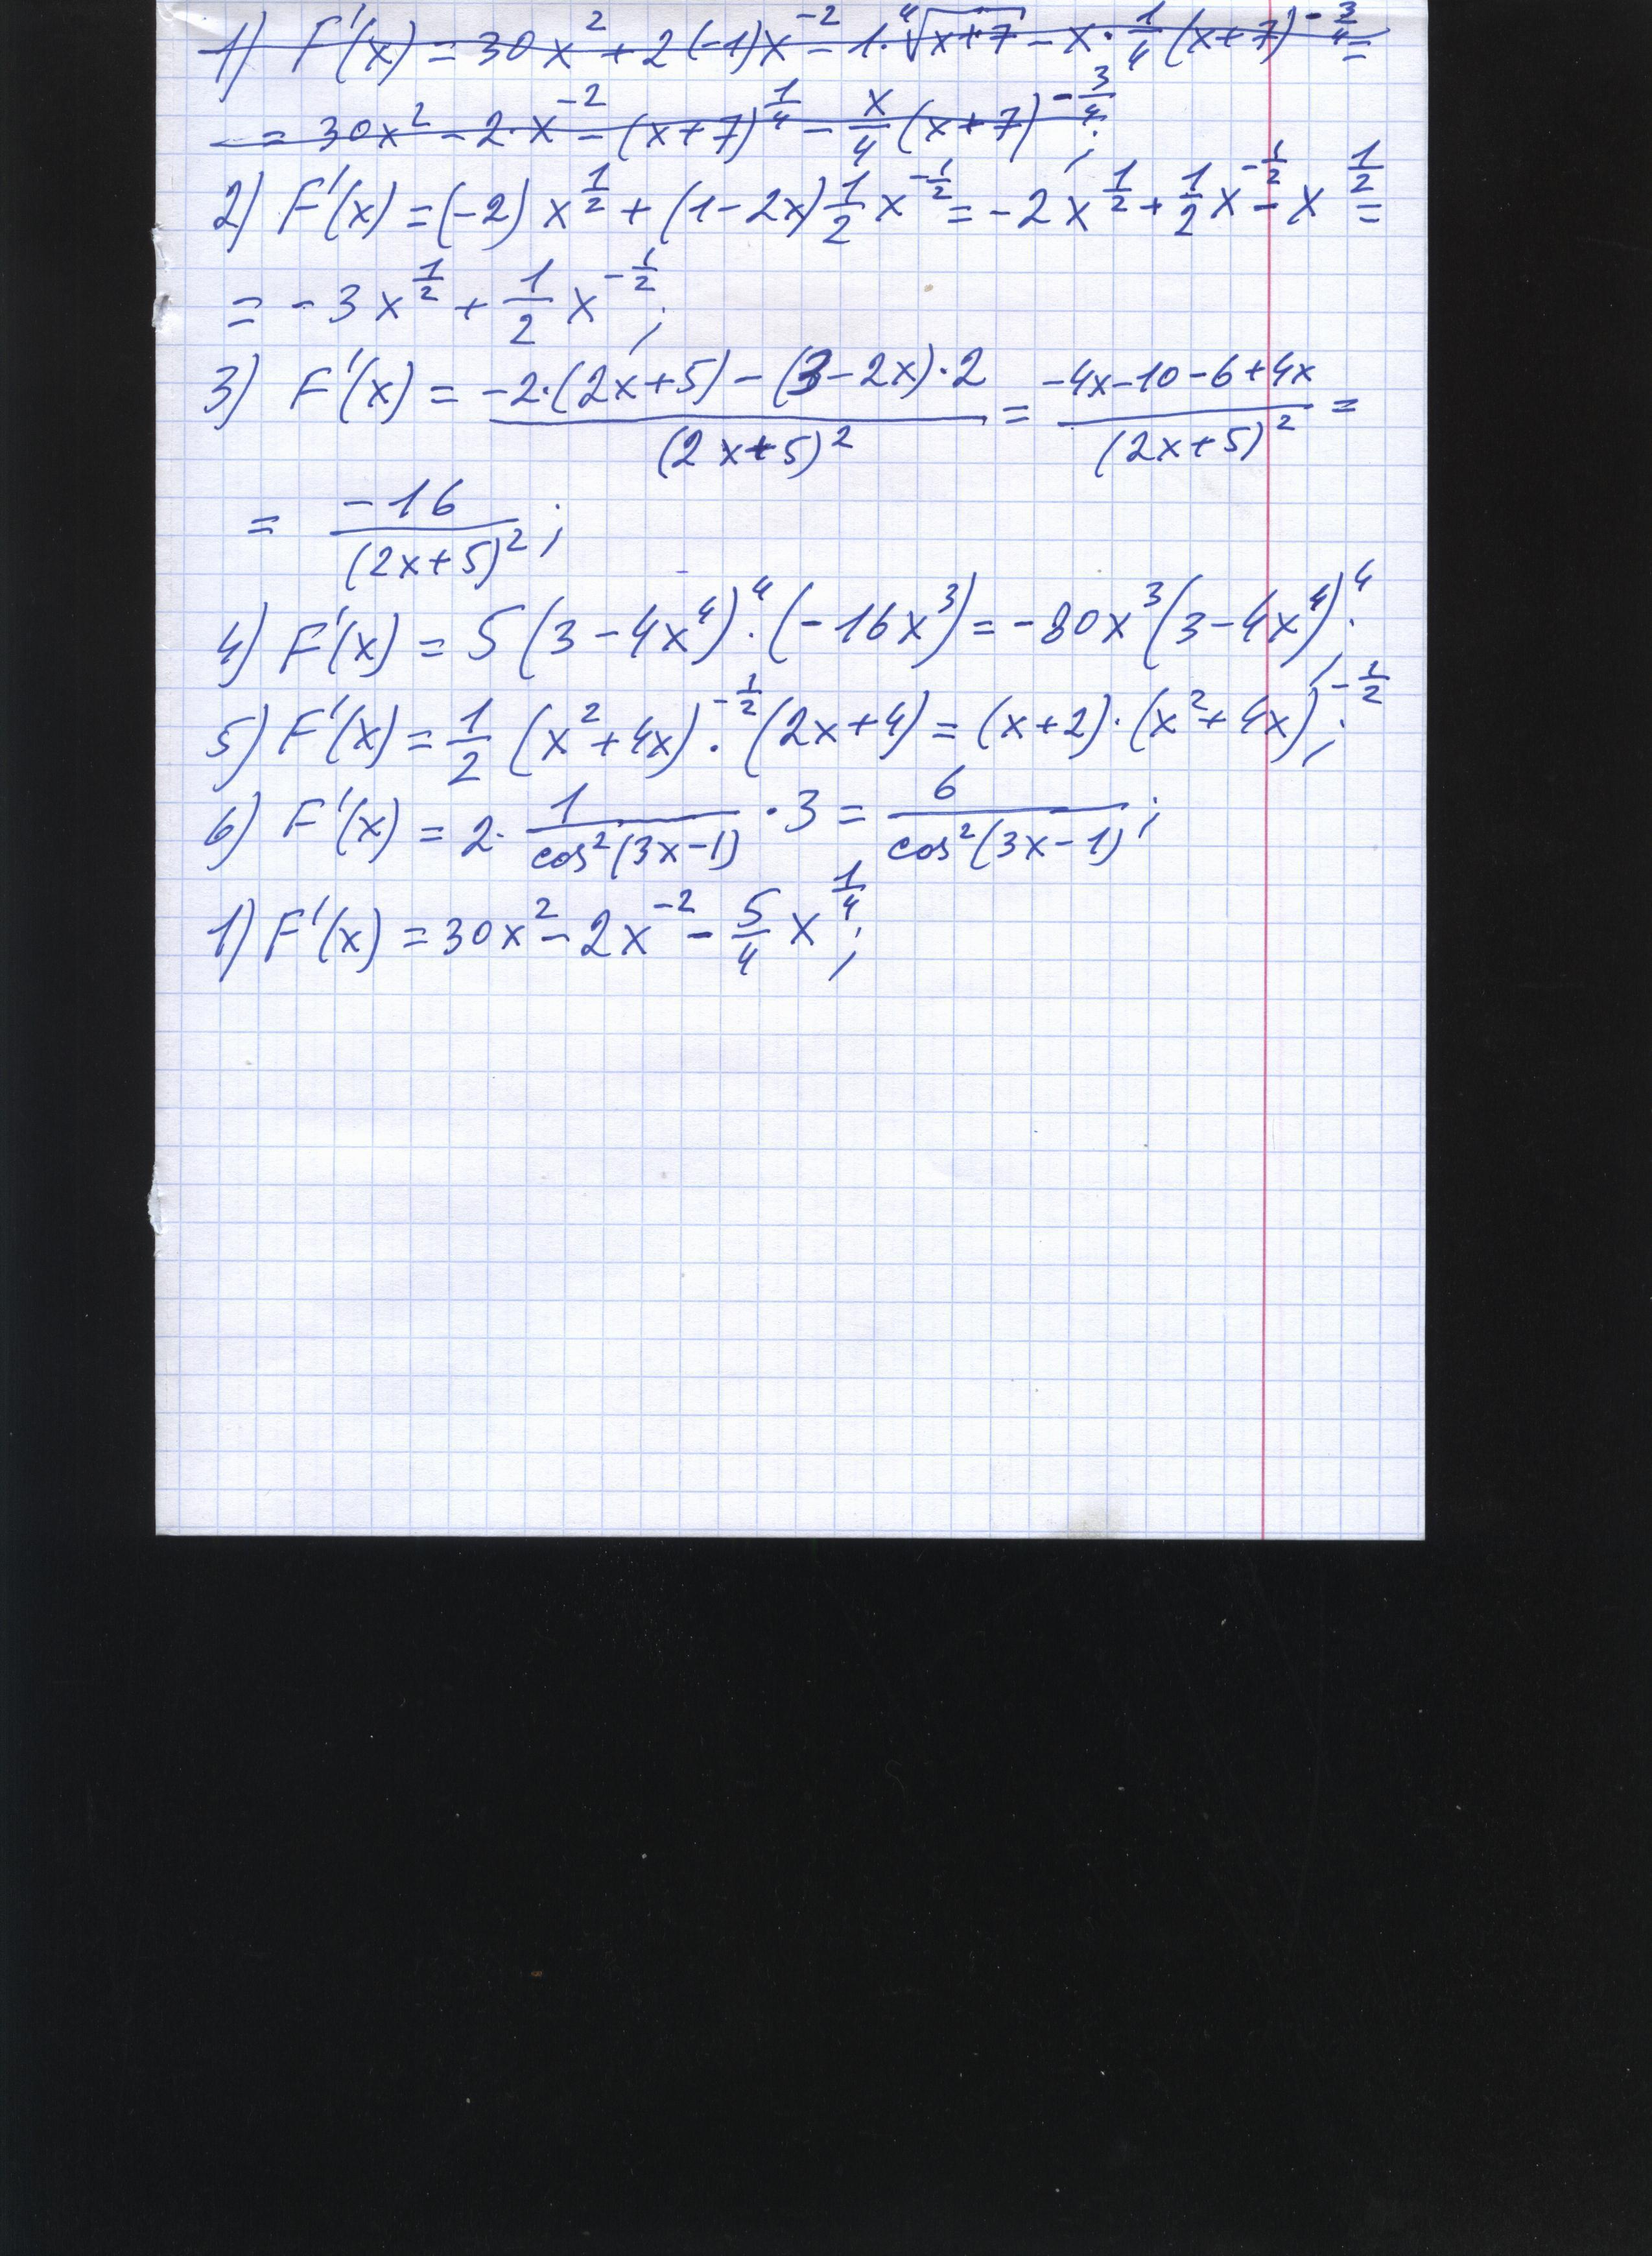 1) F'(x) = 30x² + 2(-1)x⁻² - 1·⁴√(x+7) - x·1/4(x+7)^(-3/4) =
= 30x² - 2·x⁻² - (x+7)^(1/4) - x/4(x+7)^(-3/4);
2) F'(x) = (-2)x^(1/2) + (1-2x)1/2x^(-1/2) = -2x^(1/2) + 1/2x^(-1/2) - x^(1/2) =
= -3x^(1/2) + 1/2x^(-1/2);
3) F'(x) = (-2·(2x+5) - (3-2x)·2)/(2x+5)² = (-4x-10-6+4x)/(2x+5)² =
= -16/(2x+5)²;
4) F'(x) = 5(3-4x⁴)⁴·(-16x³) = -80x³(3-4x⁴)⁴;
5) F'(x) = 1/2(x²+4x)^(-1/2)·(2x+4) = (x+2)·(x²+4x)^(-1/2);
6) F'(x) = 2·1/cos²(3x-1)·3 = 6/cos²(3x-1);
1) F'(x) = 30x² - 2x⁻² - 5/4x^(1/4);